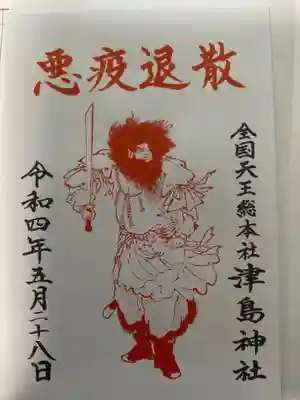 悪疫退散
全国天王総本社
津島神社
令和四年五月二十八日